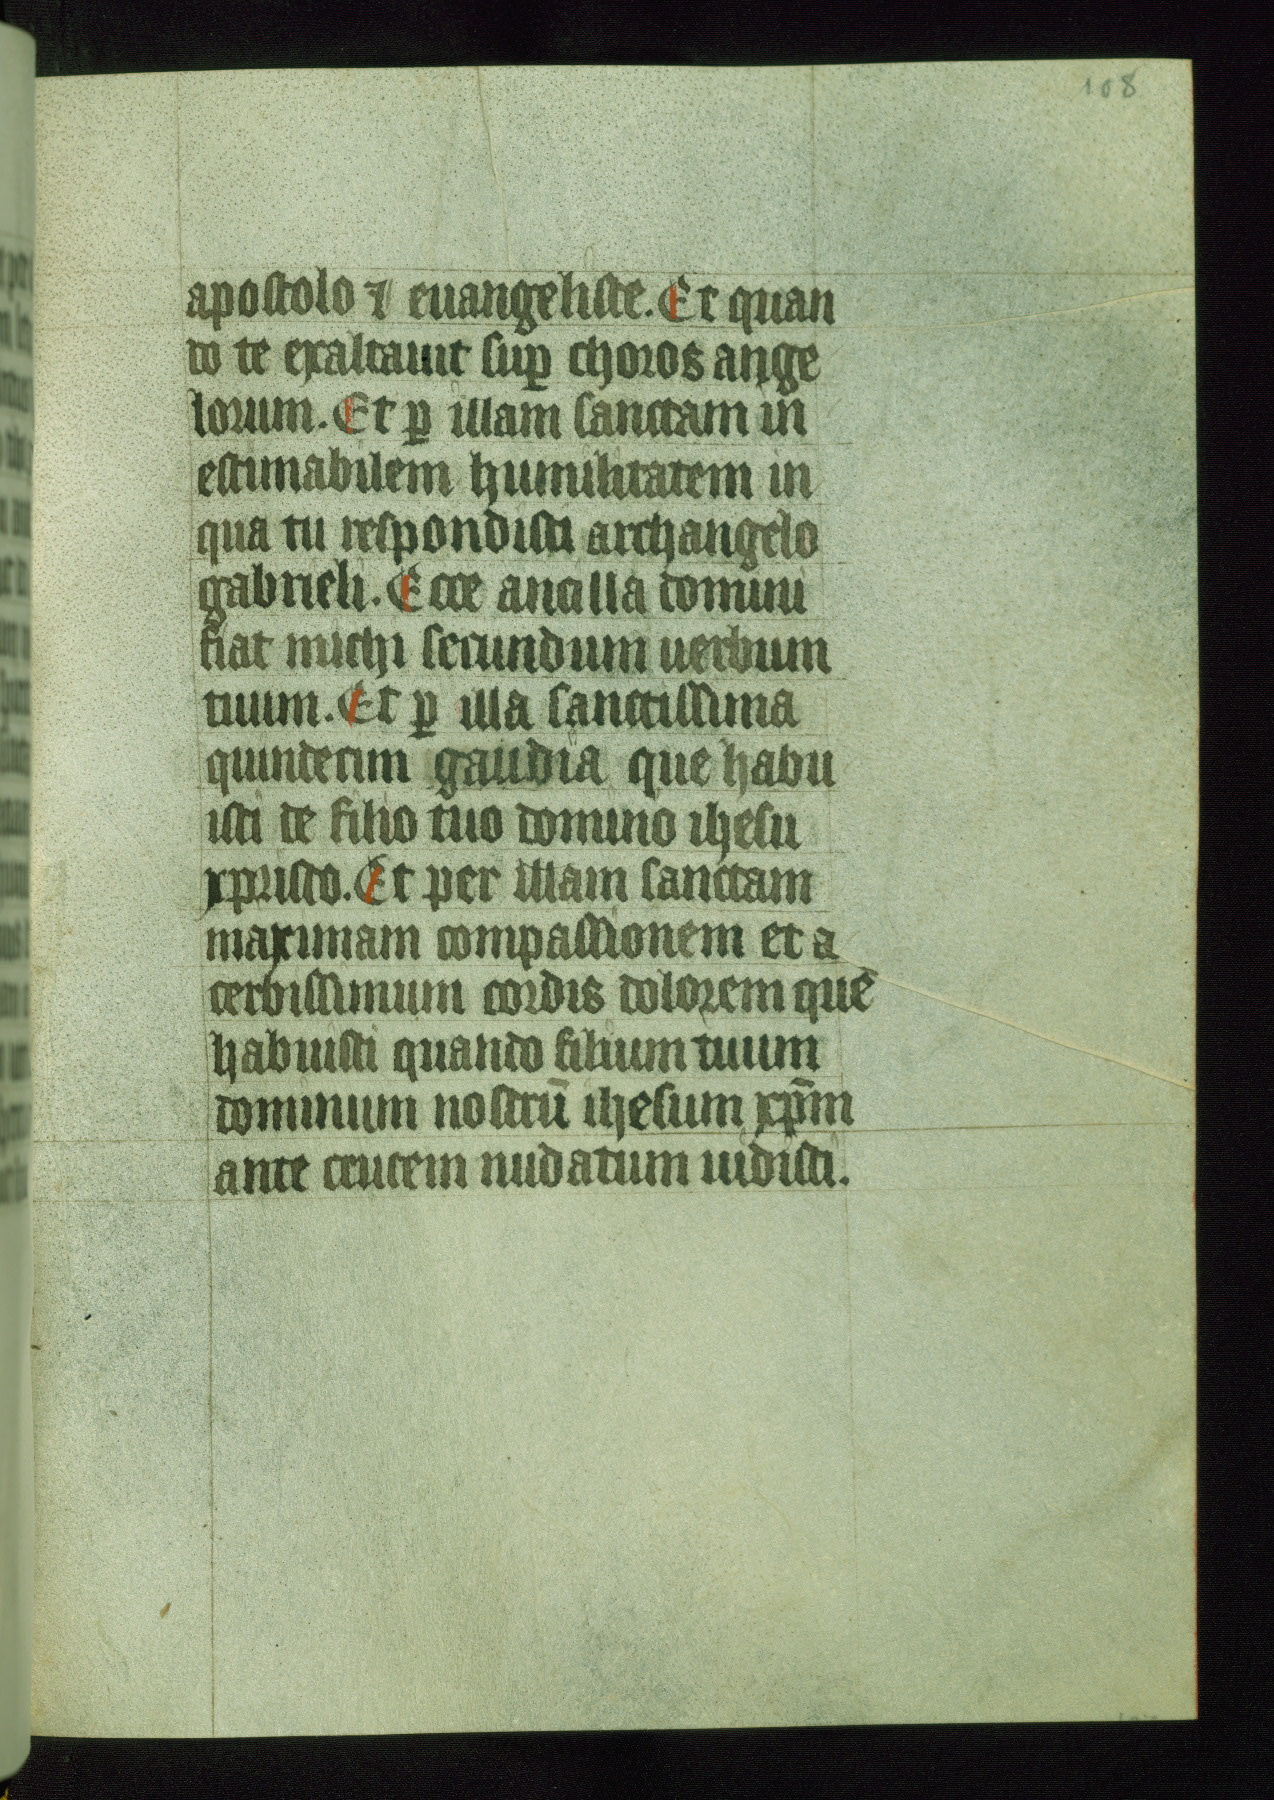 108
apostolo ⁊ euangeliste. Et quan
to te exaltauit suꝑ choros ange
lorum. Et ꝑ illam sanctam in
estimabilem humilitatem in
qua tu respondisti archangelo
gabrieli. Ecce ancilla domini
fiat michi secundum uerbum
tuum. Et ꝑ illa sanctissima
quindecim gaudia que habu
isti de filio tuo domino ihesu
xpristo. Et per illam sanctam
maximam compassionem et a
cerbissimum cordis dolorem quē
habuisti quando filium tuum
dominum nostrū ihesum xp̄m
ante crucem nudatum uidisti.